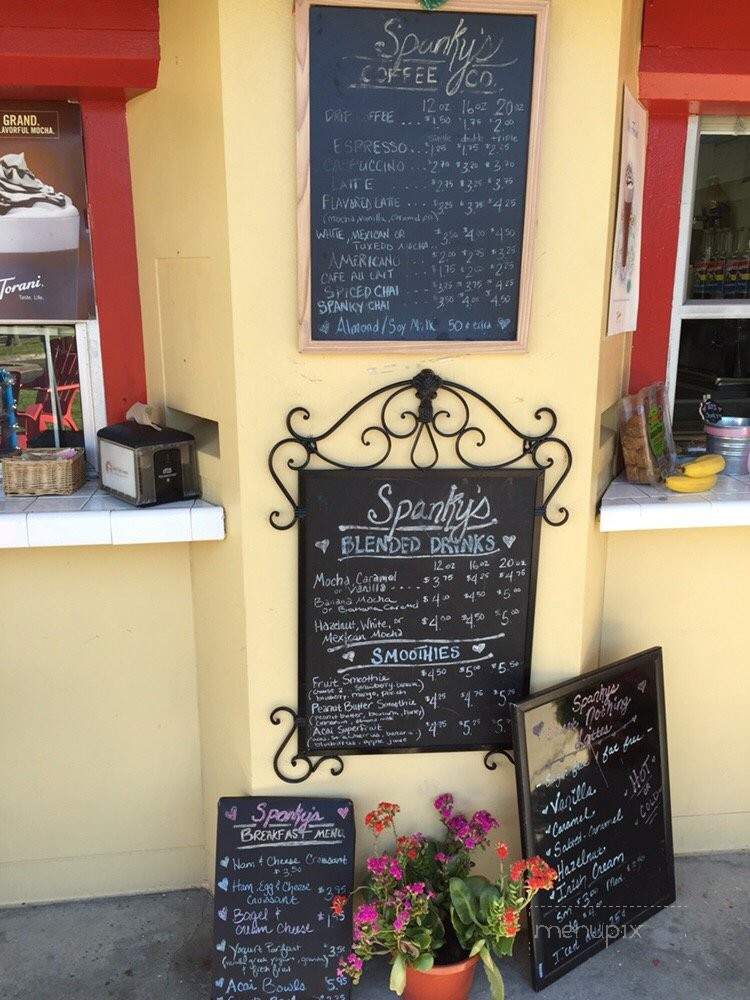 GRAND.
LAVORFUL MOCHA.
Torani.
Taste. Life.
Spanky's
COFFEE CO.
12 oz 16 oz 20 oz
DRIP COFFEE ... $1.50 $1.75 $2.00
single double triple
ESPRESSO.. $1.25 $1.75 $2.25
CAPPUCCINO ... $2.75 $3.20 $3.70
LATTE .... $2.75 $3.25 $3.75
FLAVORED LATTE ... $3.25 $3.75 $4.25
(mocha, vanilla, caramel, etc)
WHITE, MEXICAN OR $3.50 $4.00 $4.50
TUXEDO MOCHA
AMERICANO $2.00 $2.75 $3.25
CAFE AU LAIT $1.75 $2.00 $2.25
SPICED CHAI $3.25 $3.75 $4.25
SPANKY CHAI $3.50 $4.00 $4.50
Almond/Soy Milk 50¢ extra
Spanky's
BLENDED DRINKS
12 oz 16 oz 20 oz
Mocha, Caramel
or Vanilla .... $3.75 $4.25 $4.75
Banana Mocha $4.00 $4.50 $5.00
or Banana Caramel
Hazelnut, White, or $4.00 $4.50 $5.00
Mexican Mocha
SMOOTHIES
Fruit Smoothie $4.50 $5.00 $5.50
(choose 2 - strawberry, banana,
blueberry, mango, peach)
Peanut Butter Smoothie $4.25 $4.75
(peanut butter, banana, honey,
cinnamon, almond milk)
Acai Superfruit $4.75 $5.25
blueberries - apple juice)
Spanky's
Nothing
Lattes
fat free -
Vanilla
Caramel
Salted-Caramel
Hazelnut
Irish Cream
"HOT
or
COLD"
Sm $3.00 Med $3.50
Iced 25¢
Spanky's
BREAKFAST MENU
Ham & Cheese Croissant
$3.50
Ham, Egg & Cheese
Croissant $3.95
Bagel &
cream cheese
Yogurt Parfait $3.50
(vanilla greek yogurt, granola
& fresh fruit)
Acai Bowls $5.95
menupix